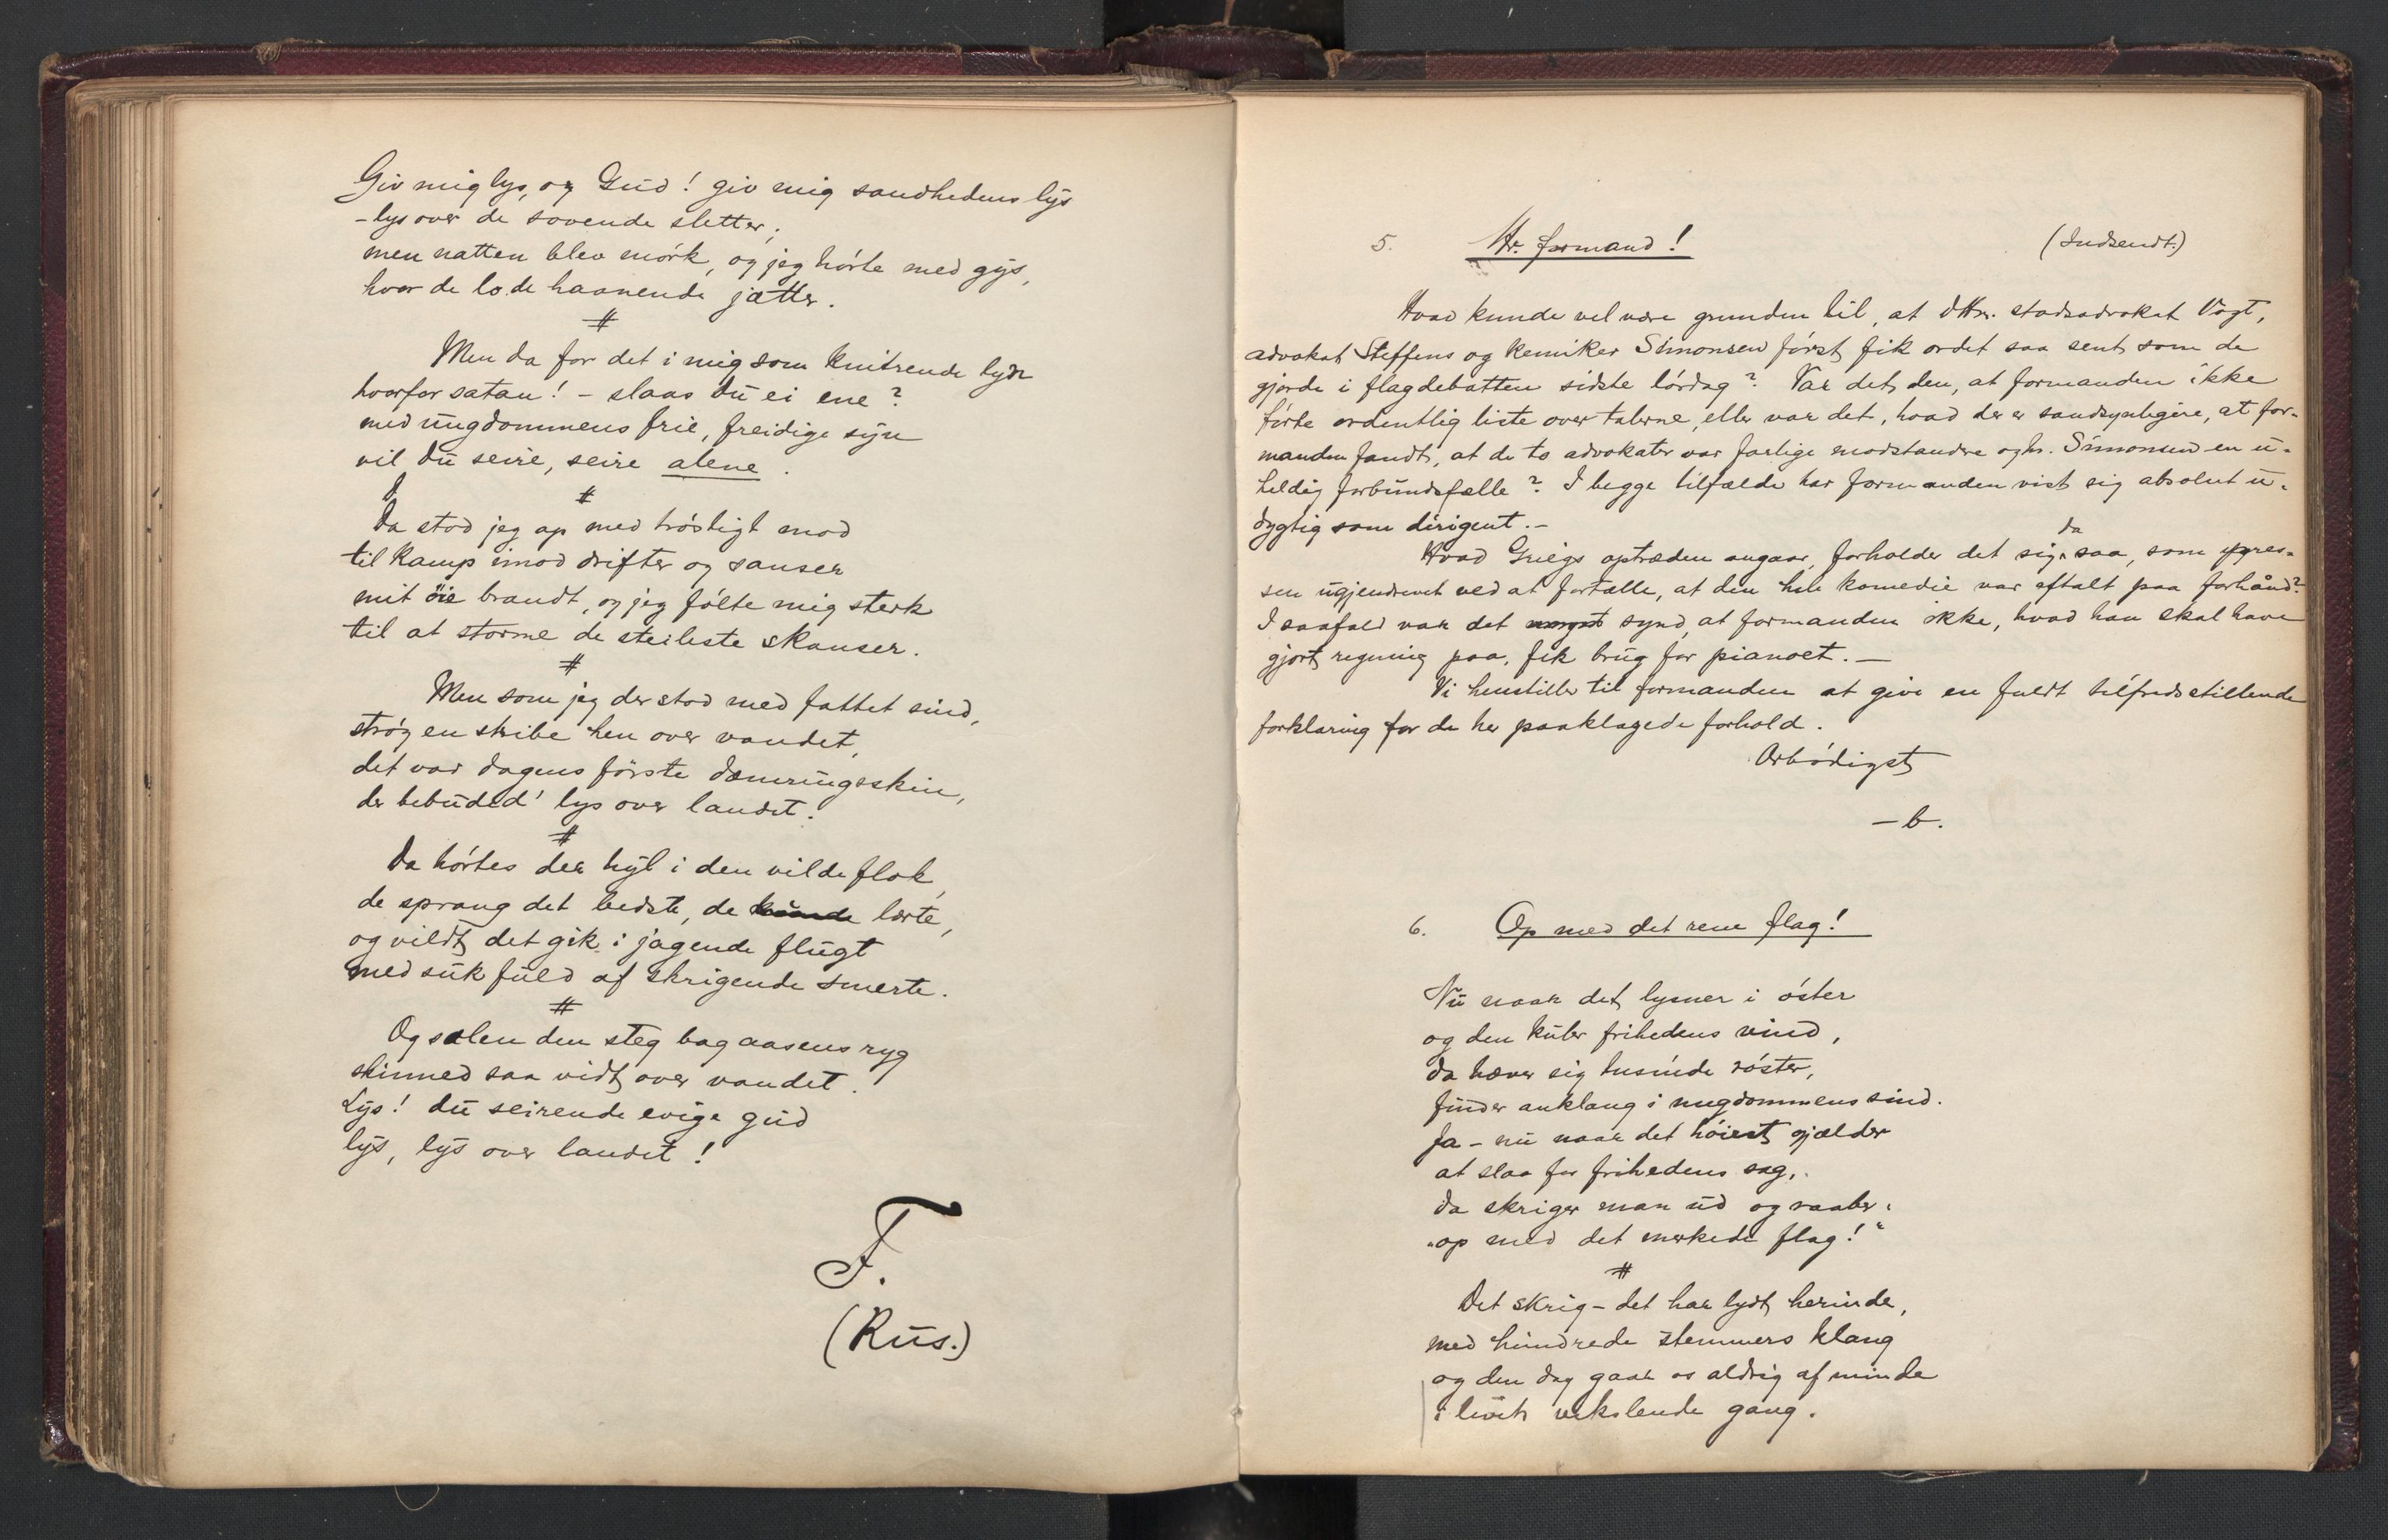 Giv mig lys, og Gud! giv mig sandhedens lys
- lys over de sovende sletter;
men natten blev mørk, og jeg hørte med gys,
hvor de lo de haanende jætter.
#
Men da for det i mig som knitrende lyn
hvorfor satan! - slaas du ei ene?
med ungdommens frie, freidige syn
vil du seire, seire alene.
#
Da stod jeg op med trøstigt mod
til kamp imod drifter og sanser
mit øie brandt, og jeg følte mig sterk
til at storme de steileste skanser.
#
Men som jeg der stod med fattet sind,
strøg en stribe hen over vandet,
det var dagens første dæmringsskin,
der bebuded' lys over landet.
#
Da hørtes der hyl i den vilde flok,
de sprang det bedste, de kunde lærte,
og vildt det gik i jagende flugt
med suk fuld af skrigende smerte.
#
Og solen den steg bag aasens ryg
skinned saa vidt over vandet.
Lys! du seirende evige gud
lys, lys over landet!
F.
(Rus.)
5. Hr. formand! (Indsendt.)
Hvad kunde vel være grunden til, at dHrr. stadsadvokat Vogt,
advokat Steffens og kemiker Simonsen først fik ordet saa sent som de
gjorde i flagdebatten sidste lørdag? Var det den, at formanden ikke
førte ordentlig liste over talerne, eller var det, hvad der er sandsynligere, at for-
manden fandt, at de to advokater var farlige modstandere og hr. Simonsen en u-
heldig forbundsfælle? I begge tilfælde har formanden vist sig absolut u-
dygtig som dirigent. -
Hvad Griegs optræden angaar, forholder det sig da saa, som pres-
sen ugjendrevet ved at fortælle, at den hele komedie var aftalt paa forhånd?
I saafald var det synd, at formanden ikke, hvad han skal have
gjort regning paa, fik brug for pianoet. -
Vi henstiller til formanden at give en fuldt tilfredsstillende
forklaring for de her paaklagede forhold.
Ærbødigst
- b.
6. Op med det rene flag!
Nu naar det lysner i øster
og den kuler frihedens vind,
da hæver sig tusinde røster,
finder anklang i ungdommens sind.
Ja - nu naar det høiest gjælder
at slaa for frihedens sag,
da skriger man ud og raaber:
"op med det merkede flag!"
#
Det skrig - det har lydt herinde,
med hundrede stemmers klang
og den dag gaar os aldrig af minde
i livets vekslende gang.